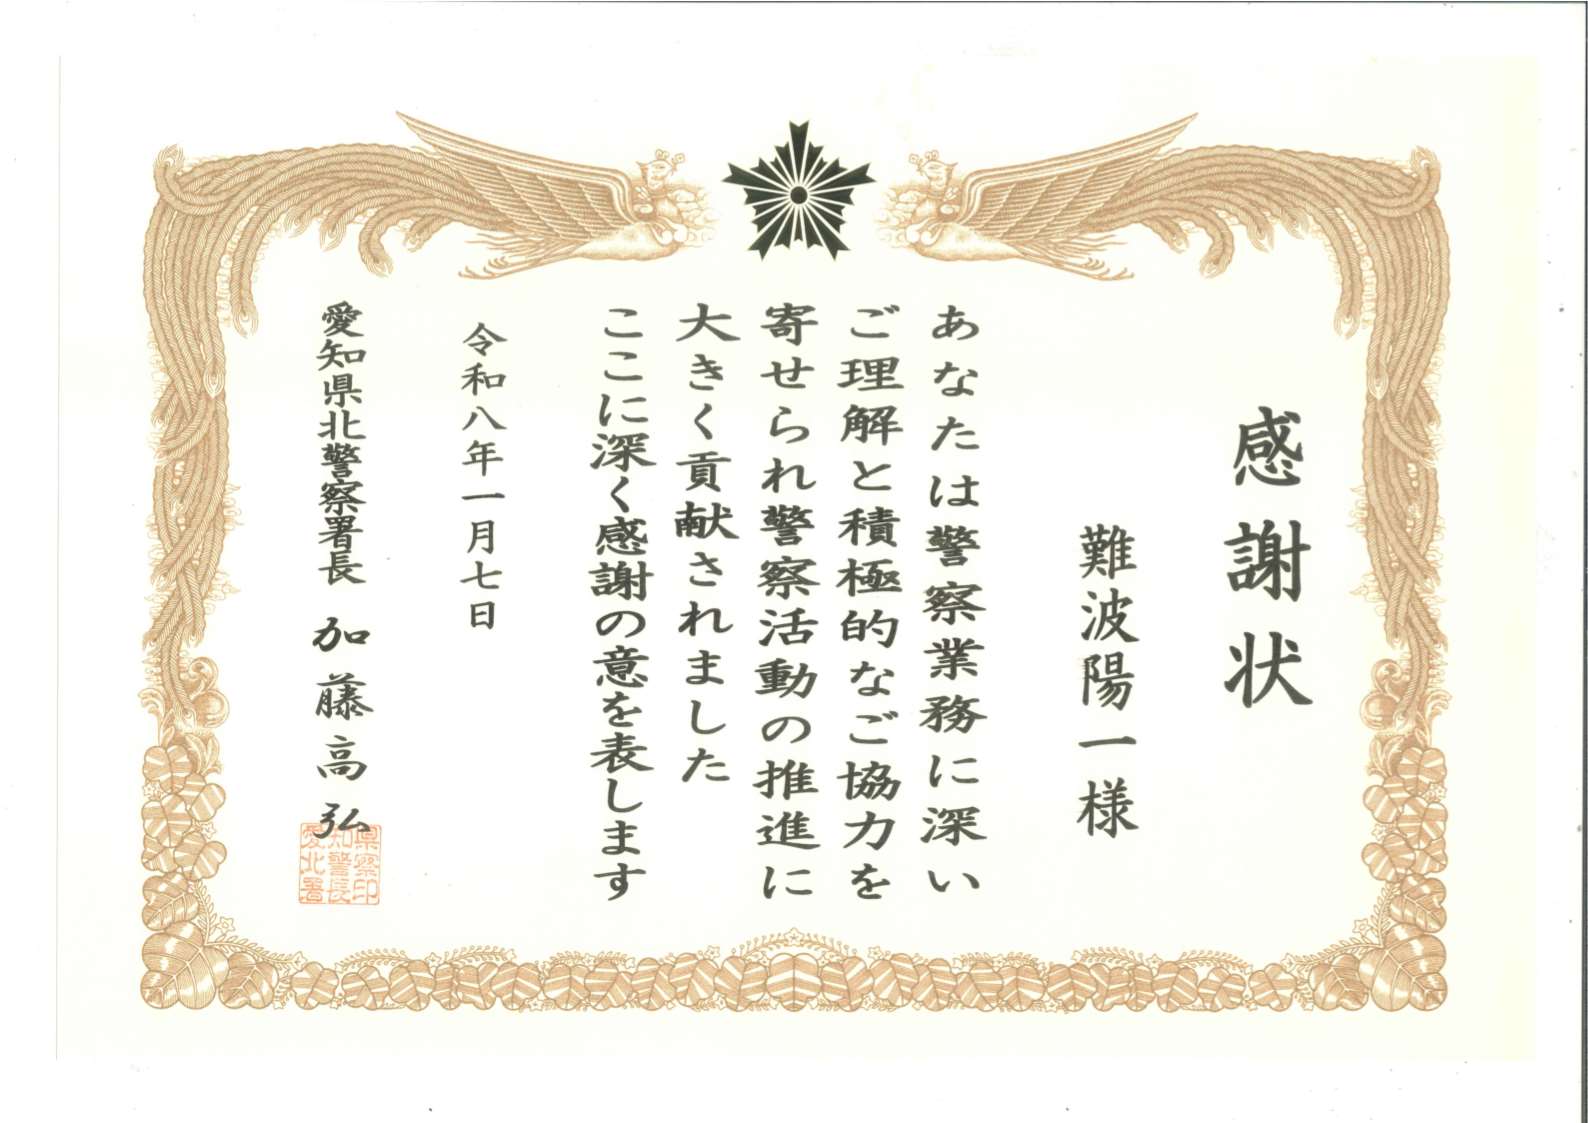 感謝状
難波陽一様
あなたは警察業務に深い
ご理解と積極的なご協力を
寄せられ警察活動の推進に
大きく貢献されました
ここに深く感謝の意を表します
令和八年一月七日
愛知県北警察署長 加藤高弘
県察印
知警長
愛北署